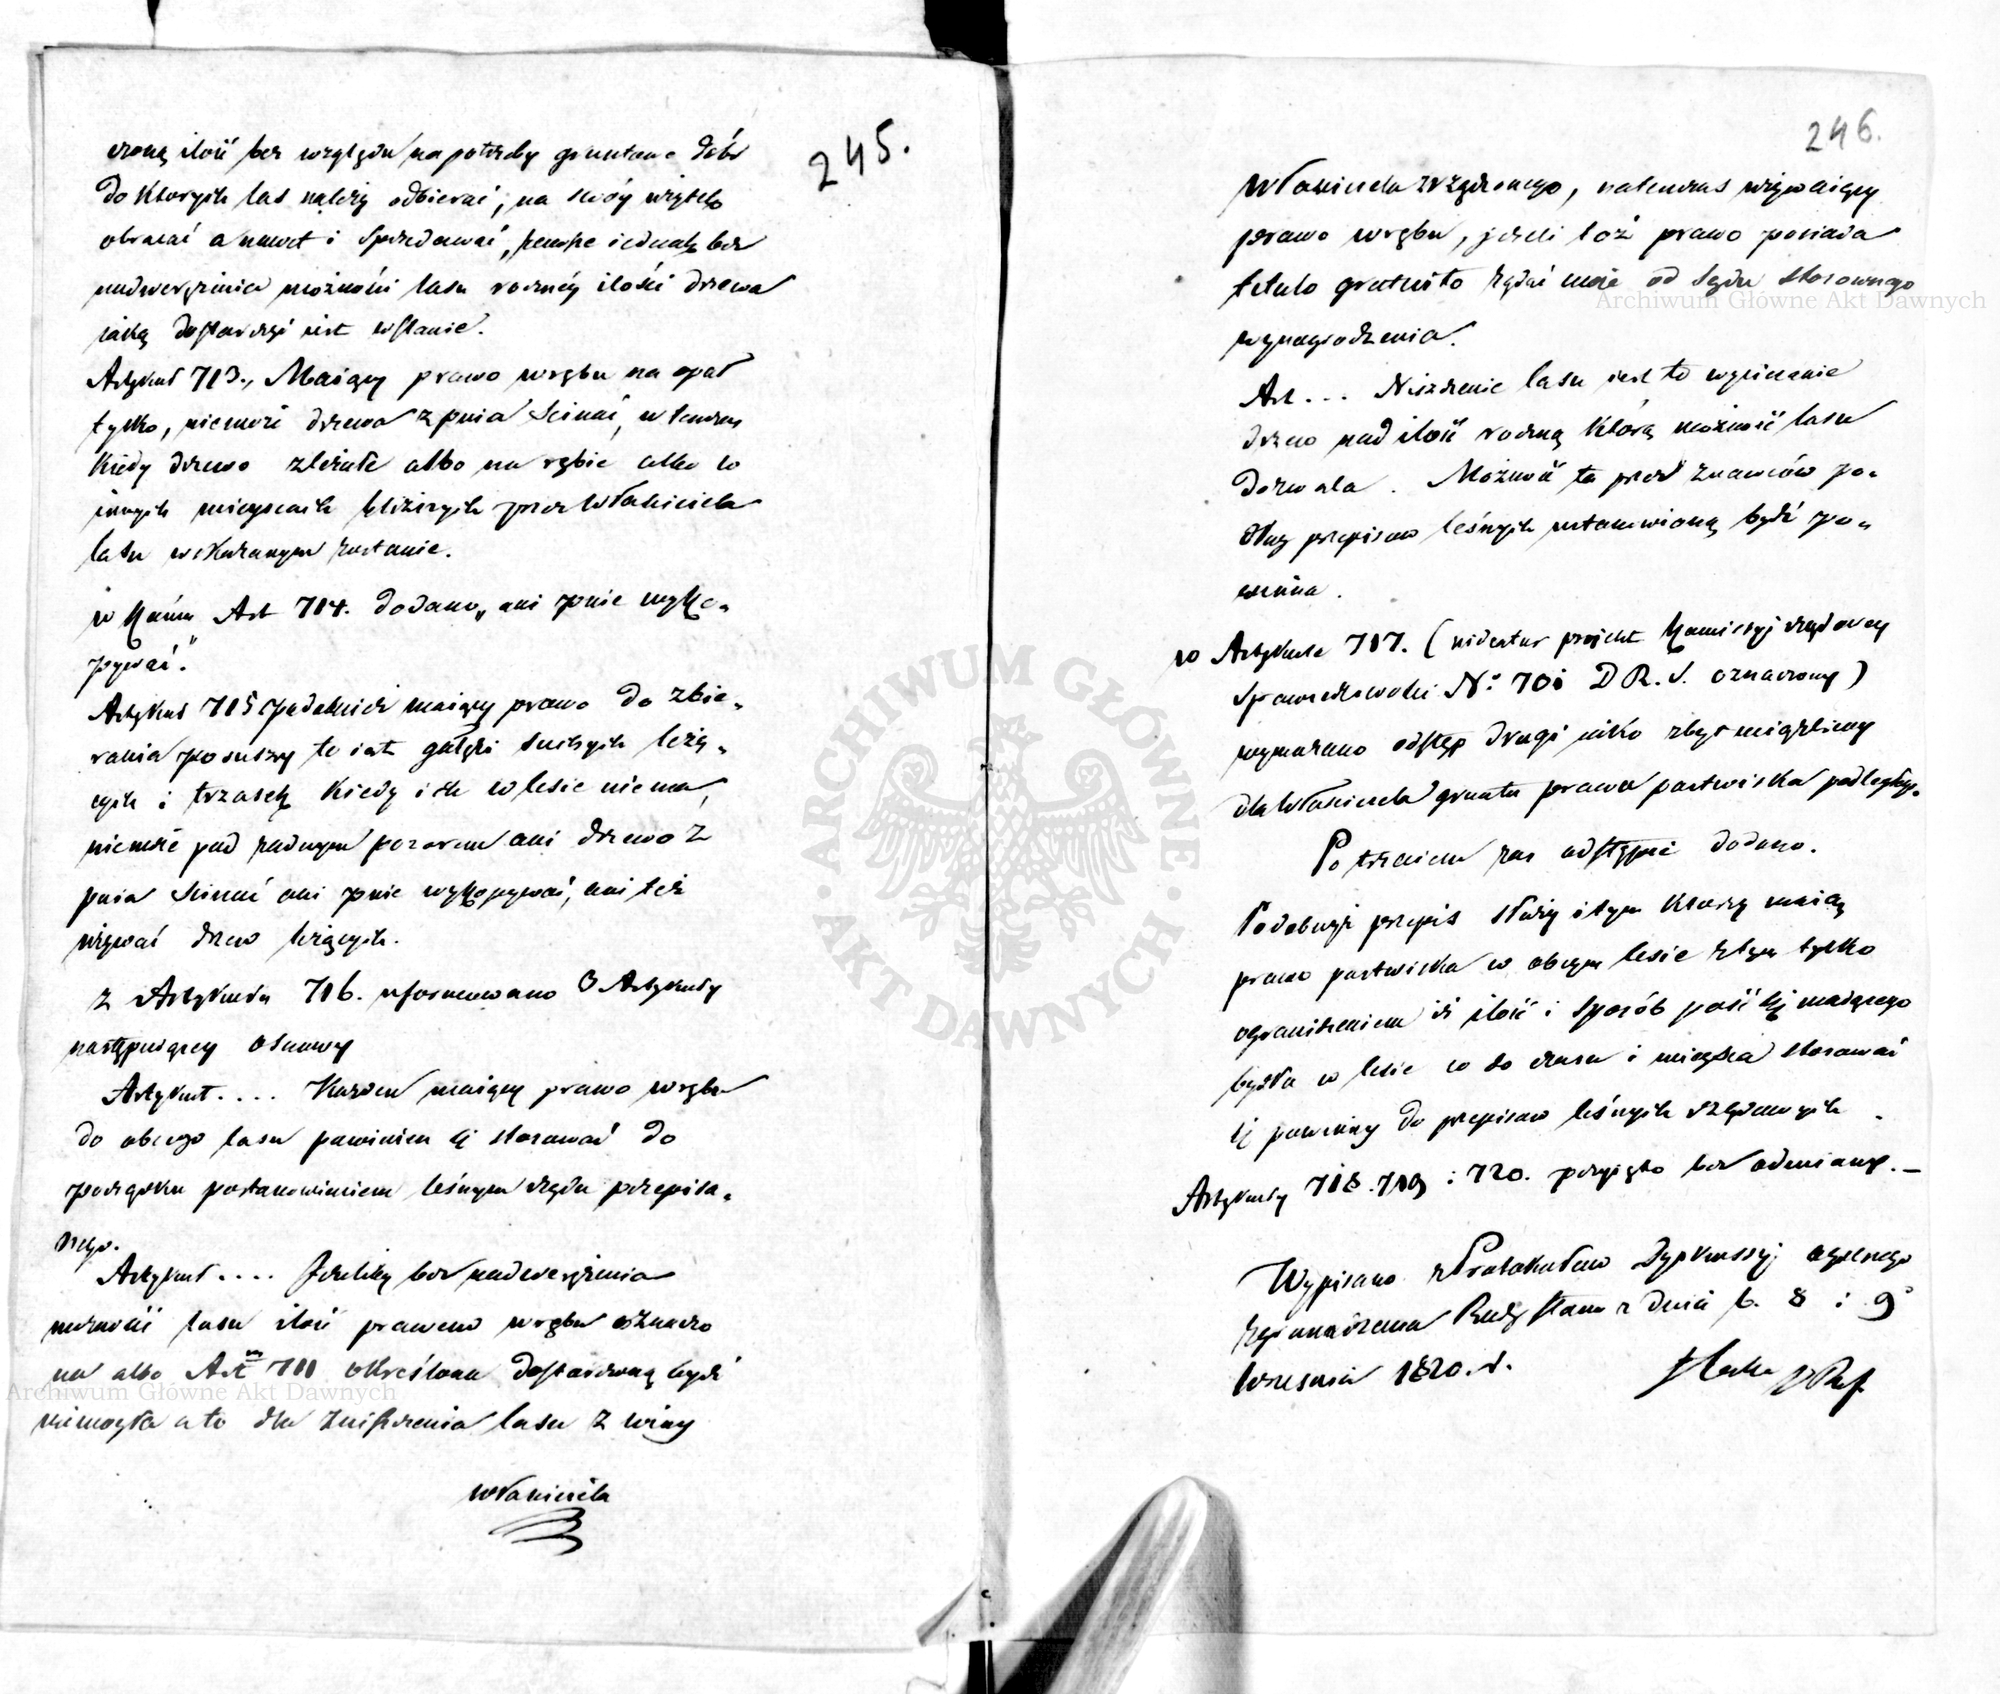 245.
czoną ilość bez względu na potrzeby gruntowe dóbr
do których las należy odbierać, na swóy użytek
obracać a nawet i sprzedawać, zawsze iednak bez
nadwerężenia możności lasu roczney ilości drzewa
iaką dostarczyć iest wstanie.
Artykuł 713., Maiący prawo wrębu na opał
tylko, niemoże drzewa z pnia ścinać, wtenczas
kiedy drzewo zleżałe albo na rębie albo w
innych mieyscach bliższych przez Właściciela
lasu wskazanym zostanie.
w końcu Art 714. dodano „ani pnie wyko-
pywać."
Artykuł 715 Podobnież maiący prawo do zbie-
rania posuszy to iest gałęzi suchych leżą-
cych i trzasek kiedy ich w lesie niema,
niemoże pod żadnym pozorem ani drzewo z
pnia ścinać ani pnie wykopywać, ani też
używać drzew leżących.
z Artykułu 716. uformowano 3 Artykuły
następuiącey osnowy
Artykuł .... Każden maiący prawo wrębu
do obcego lasu powinien się stosować do
porządku postanowieniem leśnym rządu przepisa-
nego.
Artykuł .... Jeżeliby bez nadwerężenia
możności lasu ilość prawem wrębu oznaczo
na albo Art.m 711 określona dostarczoną bydź
niemogła a to dla zniszczenia lasu z winy
właściciela
246.
Właściciela zrządzonego, natenczas używaiący
prawo wrębu, jeżeli toż prawo posiada
titulo gratuito żądać może od Sądu stosownego
wynagrodzenia.
Art ... Niszczenie lasu iest to wycinanie
drzew nad ilość roczną którą możność lasu
dozwala. Możność ta przez znawców po-
dług przepisów leśnych ustanowioną bydź po-
winna.
w Artykule 717. (videatur projekt Kommissyi rządowey
Sprawiedliwości No 701 D.R.S. oznaczony)
wymazano odstęp drugi iako zbyt uciążliwy
dla Właściciela gruntu prawu pastwiska podległego.
Po trzecim zaś odstępie dodano.
Podobnyż przepis służy i tym którzy maią
prawo pastwiska w obcym lesie z tym tylko
ograniczeniem iż ilość i sposób paść się maiącego
bydła w lesie co do czasu i mieysca stosować
się powinny do przepisów leśnych rządowych.
Artykuły 718. 719 i 720. przyięto bez odmiany. —
Wypisano z Protokułów Dyskussyi ogólnego
Zgromadzenia Rady Stanu z dnia 6. 8 i 9
Września 1820. r.
Archiwum Główne Akt Dawnych
Archiwum Główne Akt Dawnych
ARCHIWUM GŁÓWNE
AKT DAWNYCH